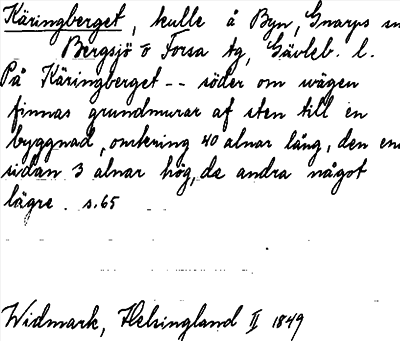 Käringberget, kulle å Byn, Gnarps sn
Bergsjö o Forsa tg, Gävleb. l.
På Käringberget -- söder om vägen
finnas grundmurar af sten till en
byggnad, omkring 40 alnar lång, den ena
sidan 3 alnar hög, de andra något
lägre. s. 65
Widmark, Helsingland II 1849